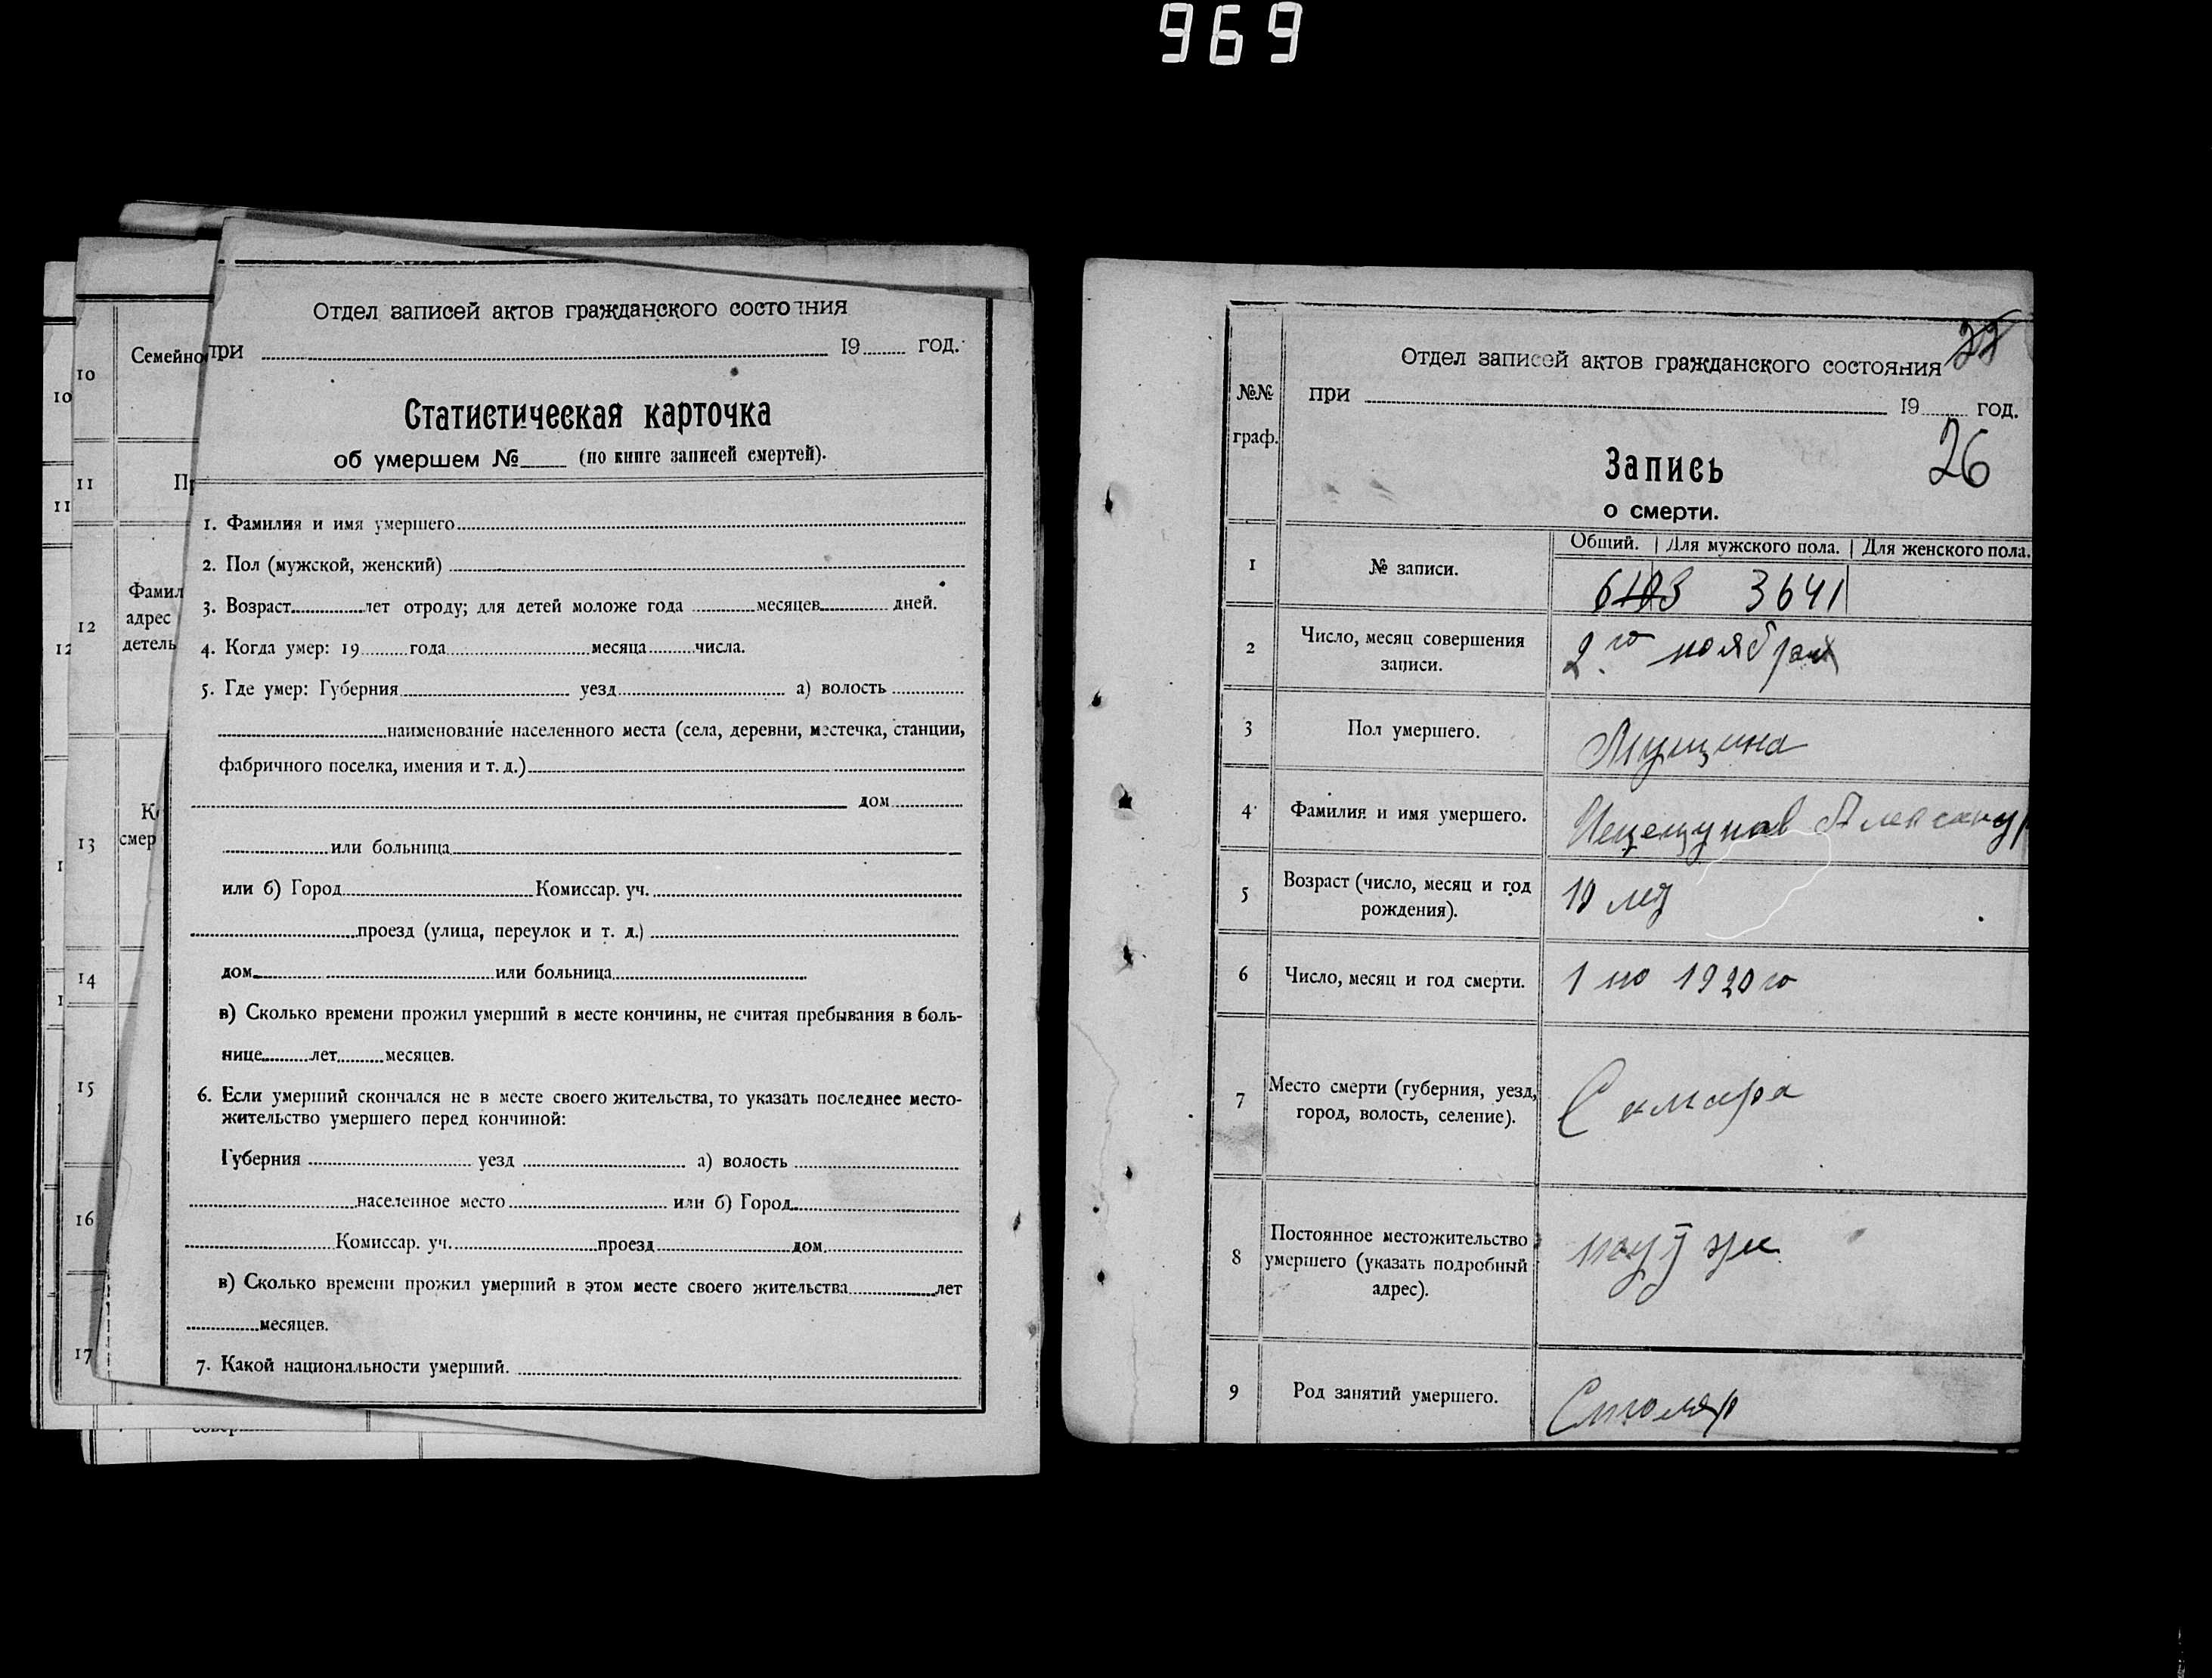 969
10
10
11
11
12
12
13
14
15
16
17
Семейно
Фамил
адрес
детель
смер
Отдел записей актов гражданского состояния
при 19 год.
Статистическая карточка
об умершем № (по книге записей смертей).
1. Фамилия и имя умершего
2. Пол (мужской, женский)
3. Возраст лет отроду; для детей моложе года месяцев дней.
4. Когда умер: 19 года месяца числа.
5. Где умер: Губерния уезд а) волость
наименование населенного места (села, деревни, местечка, станции,
фабричного поселка, имения и т. д.)
дом
или больница
или б) Город Комиссар. уч.
проезд (улица, переулок и т. д.)
дом или больница
в) Сколько времени прожил умерший в месте кончины, не считая пребывания в боль-
нице лет месяцев.
6. Если умерший скончался не в месте своего жительства, то указать последнее место-
жительство умершего перед кончиной:
Губерния уезд а) волость
населенное место или б) Город
Комиссар. уч. проезд дом
в) Сколько времени прожил умерший в этом месте своего жительства лет
месяцев.
7. Какой национальности умерший.
№№
граф.
Отдел записей актов гражданского состояния
при 19 год.
26
Запись
о смерти.
Общий. Для мужского пола. Для женского пола.
1 № записи.
3641
2 Число, месяц совершения
записи.
2го ноября
3 Пол умершего.
Мущина
4 Фамилия и имя умершего.
Александр
5 Возраст (число, месяц и год
рождения).
19 лет
6 Число, месяц и год смерти.
1 но 1920 го
7 Место смерти (губерния, уезд,
город, волость, селение).
Самара
8 Постоянное местожительство
умершего (указать подробный
адрес).
9 Род занятий умершего.
Столяр